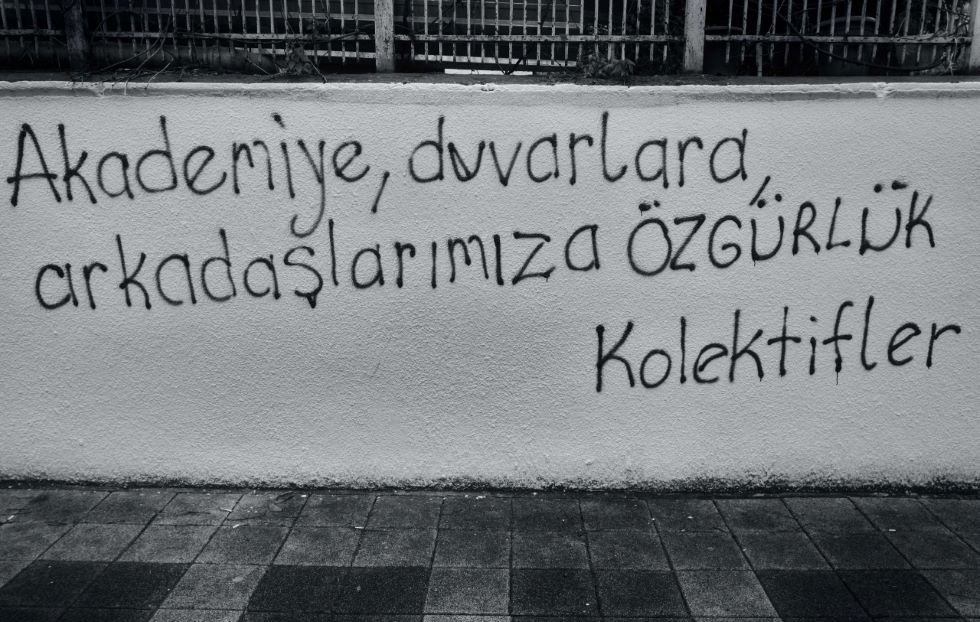 Akademiye, duvarlara,
arkadaşlarımıza ÖZGÜRLÜK
Kolektifler